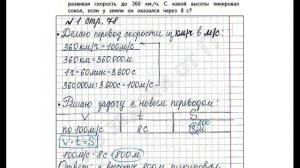 развивая скорость до 360 км/ч. С какой высоты пикировал
сокол, если у земли он оказался через 8 с?
№ 1 стр. 78
• Делаю перевод скорости из км/ч в м/с:
360км/ч = 100м/с
360 км = 360000м
1ч = 60мин = 3600с
360000м : 3600с = 100м/с
• Решаю задачу с новым переводом:
V t S
по 100м/с 8с
V • t = S
100м/с • 8с = 800м
Ответ: с высоты 800м пикировал